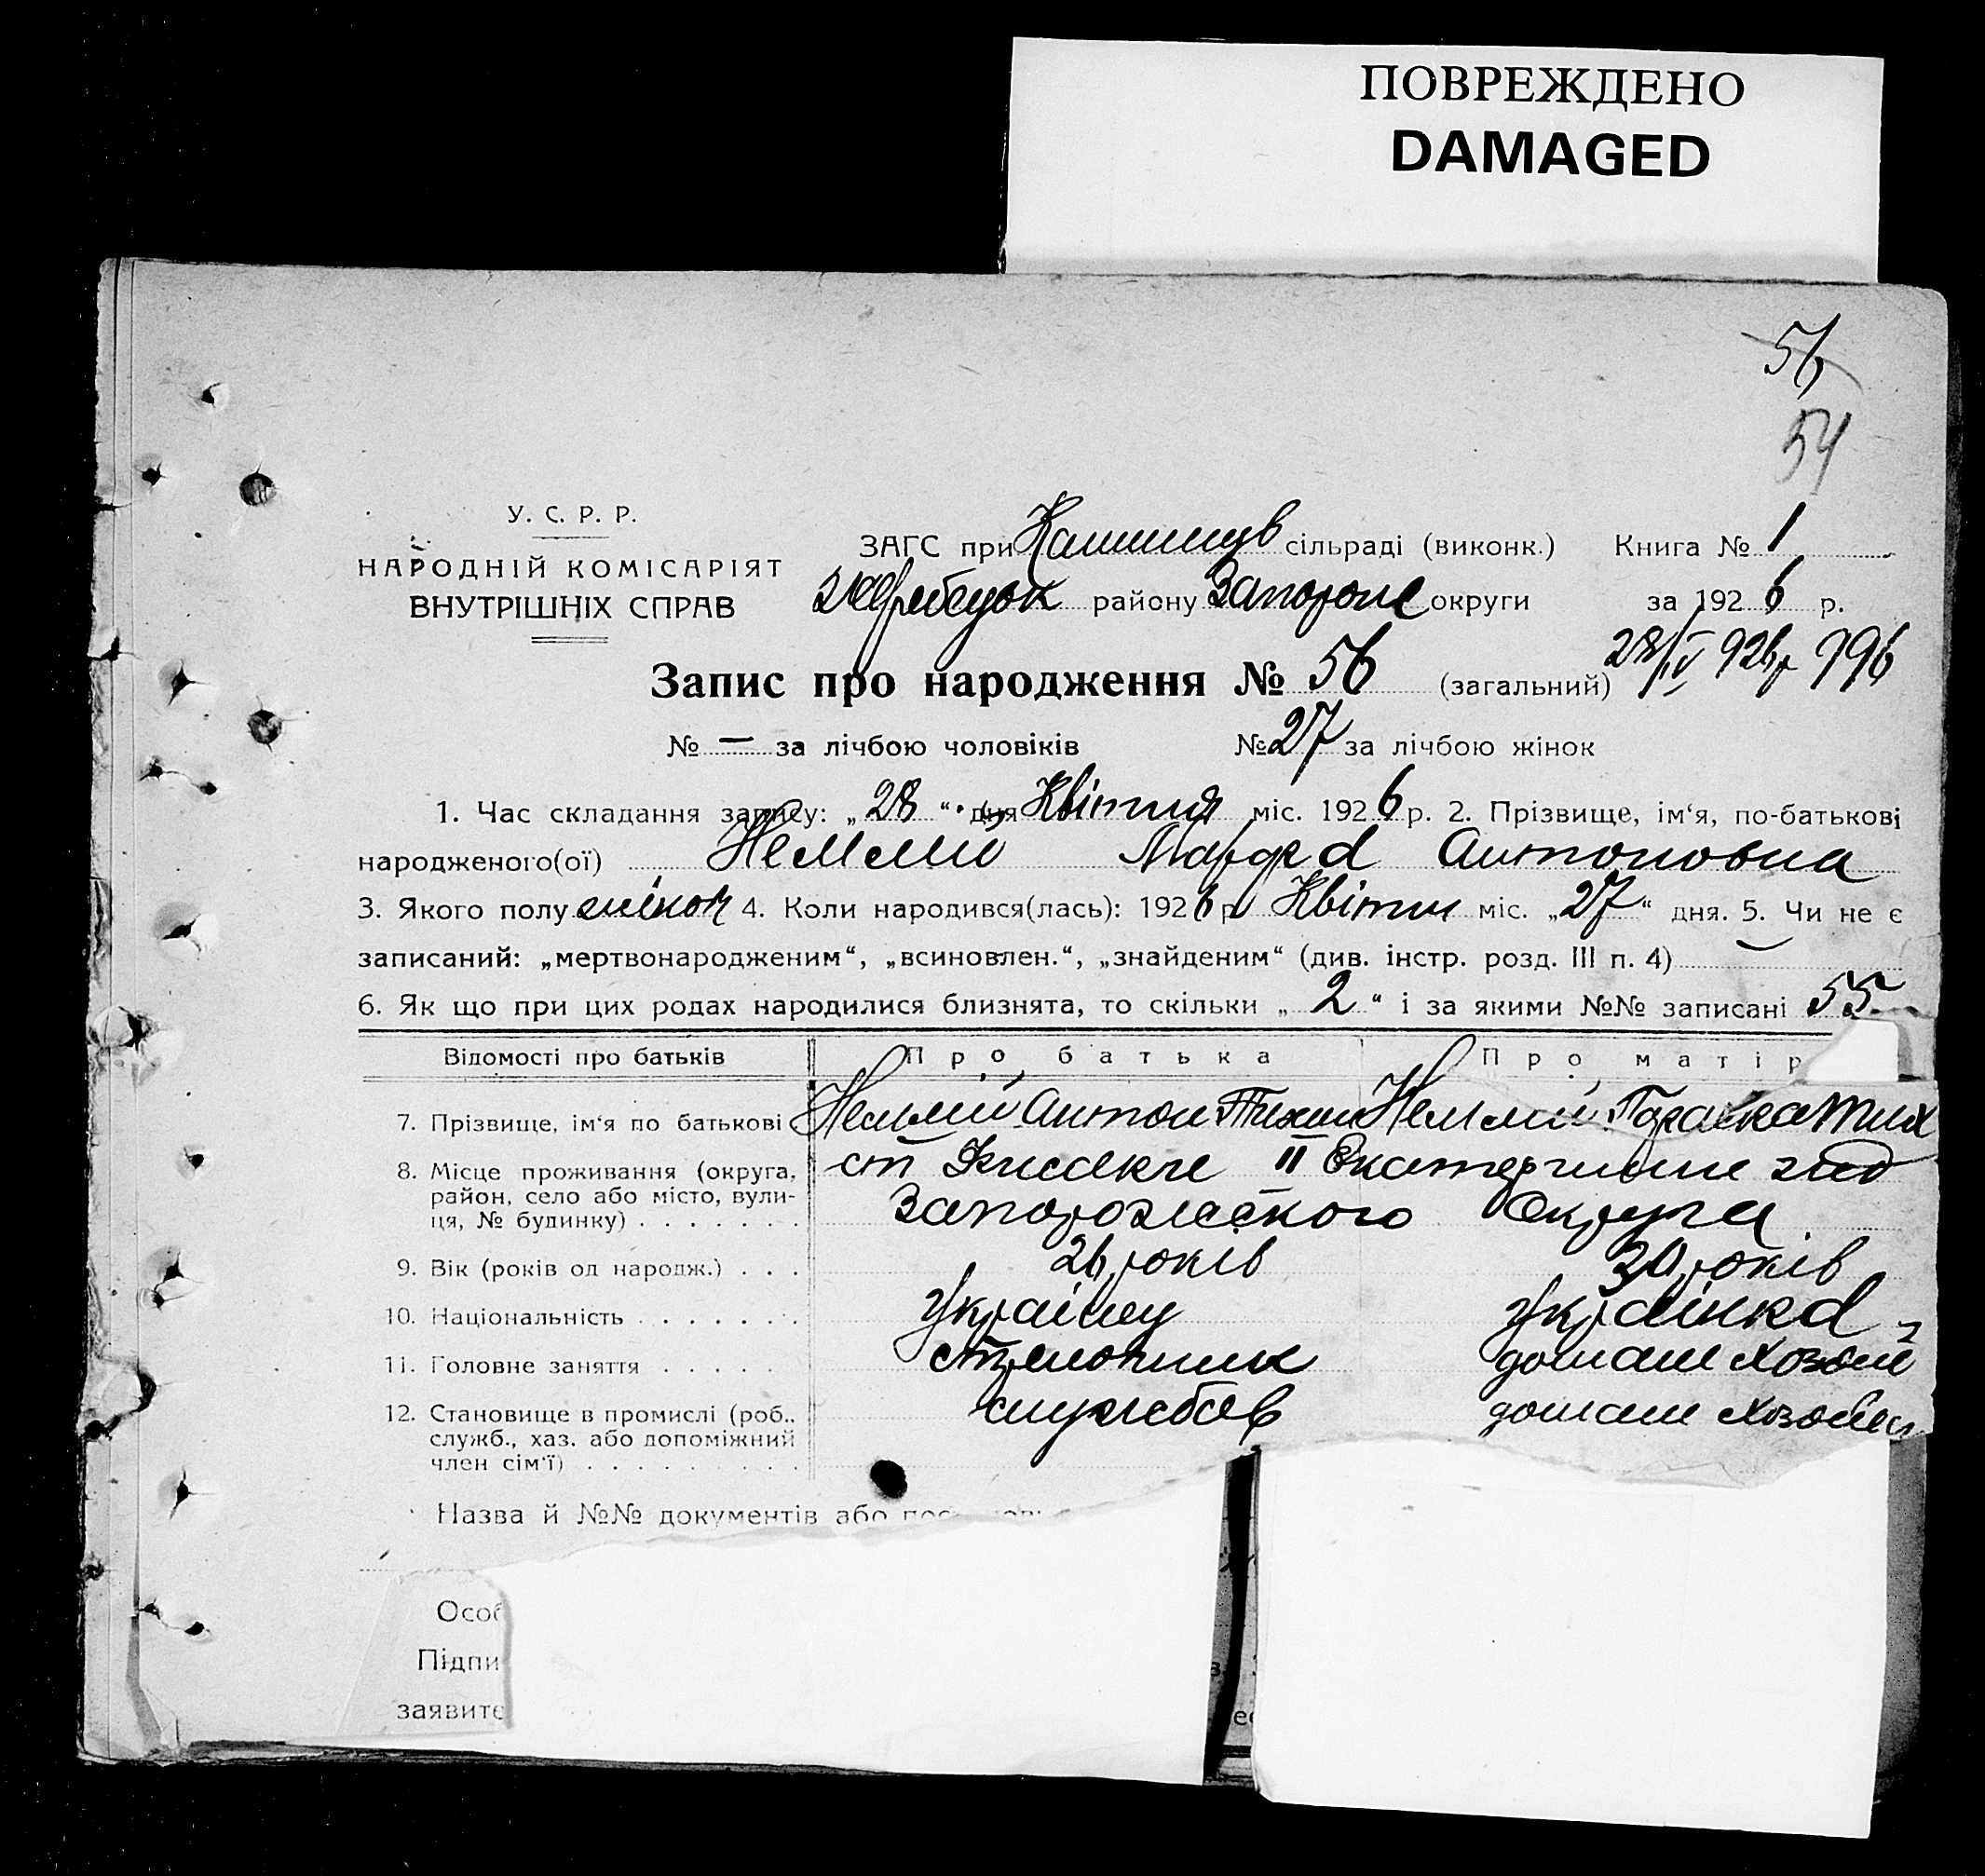 ПОВРЕЖДЕНО
DAMAGED
56
54
У. С. Р. Р.
НАРОДНІЙ КОМІСАРІЯТ
ВНУТРІШНІХ СПРАВ
ЗАГС при сільраді (виконк.) Книга № 1
району Запорож округи за 1926 р.
28/IV 926 р 996
Запис про народження № 56 (загальний)
№ — за лічбою чоловіків № 27 за лічбою жінок
1. Час складання запису: „28“ дня Квітня міс. 1926 р. 2. Прізвище, ім‘я, по-батькові
народженого(ої) Антоновна
3. Якого полу жіноч 4. Коли народився(лась): 1926 р Квітн міс. „27“ дня. 5. Чи не є
записаний: „мертвонародженим“, „всиновлен.“, „знайденим“ (див. інстр. розд. III п. 4) —
6. Як що при цих родах народилися близнята, то скільки „2“ і за якими №№ записані 55
Відомості про батьків Про батька Про матір
7. Прізвище, ім‘я по батькові Антон Тихон
8. Місце проживання (округа, ст II
район, село або місто, вули-
ця, № будинку) Запорожского Округа
9. Вік (років од народж.) 26 років 30 років
10. Національність Українец Українка
11. Головне заняття стрелочник домаш хозяй
12. Становище в промислі (роб., службов домаш
служб., хаз. або допоміжний
член сім‘ї)
Назва й №№ документів або
Особ
Підпи
заявите